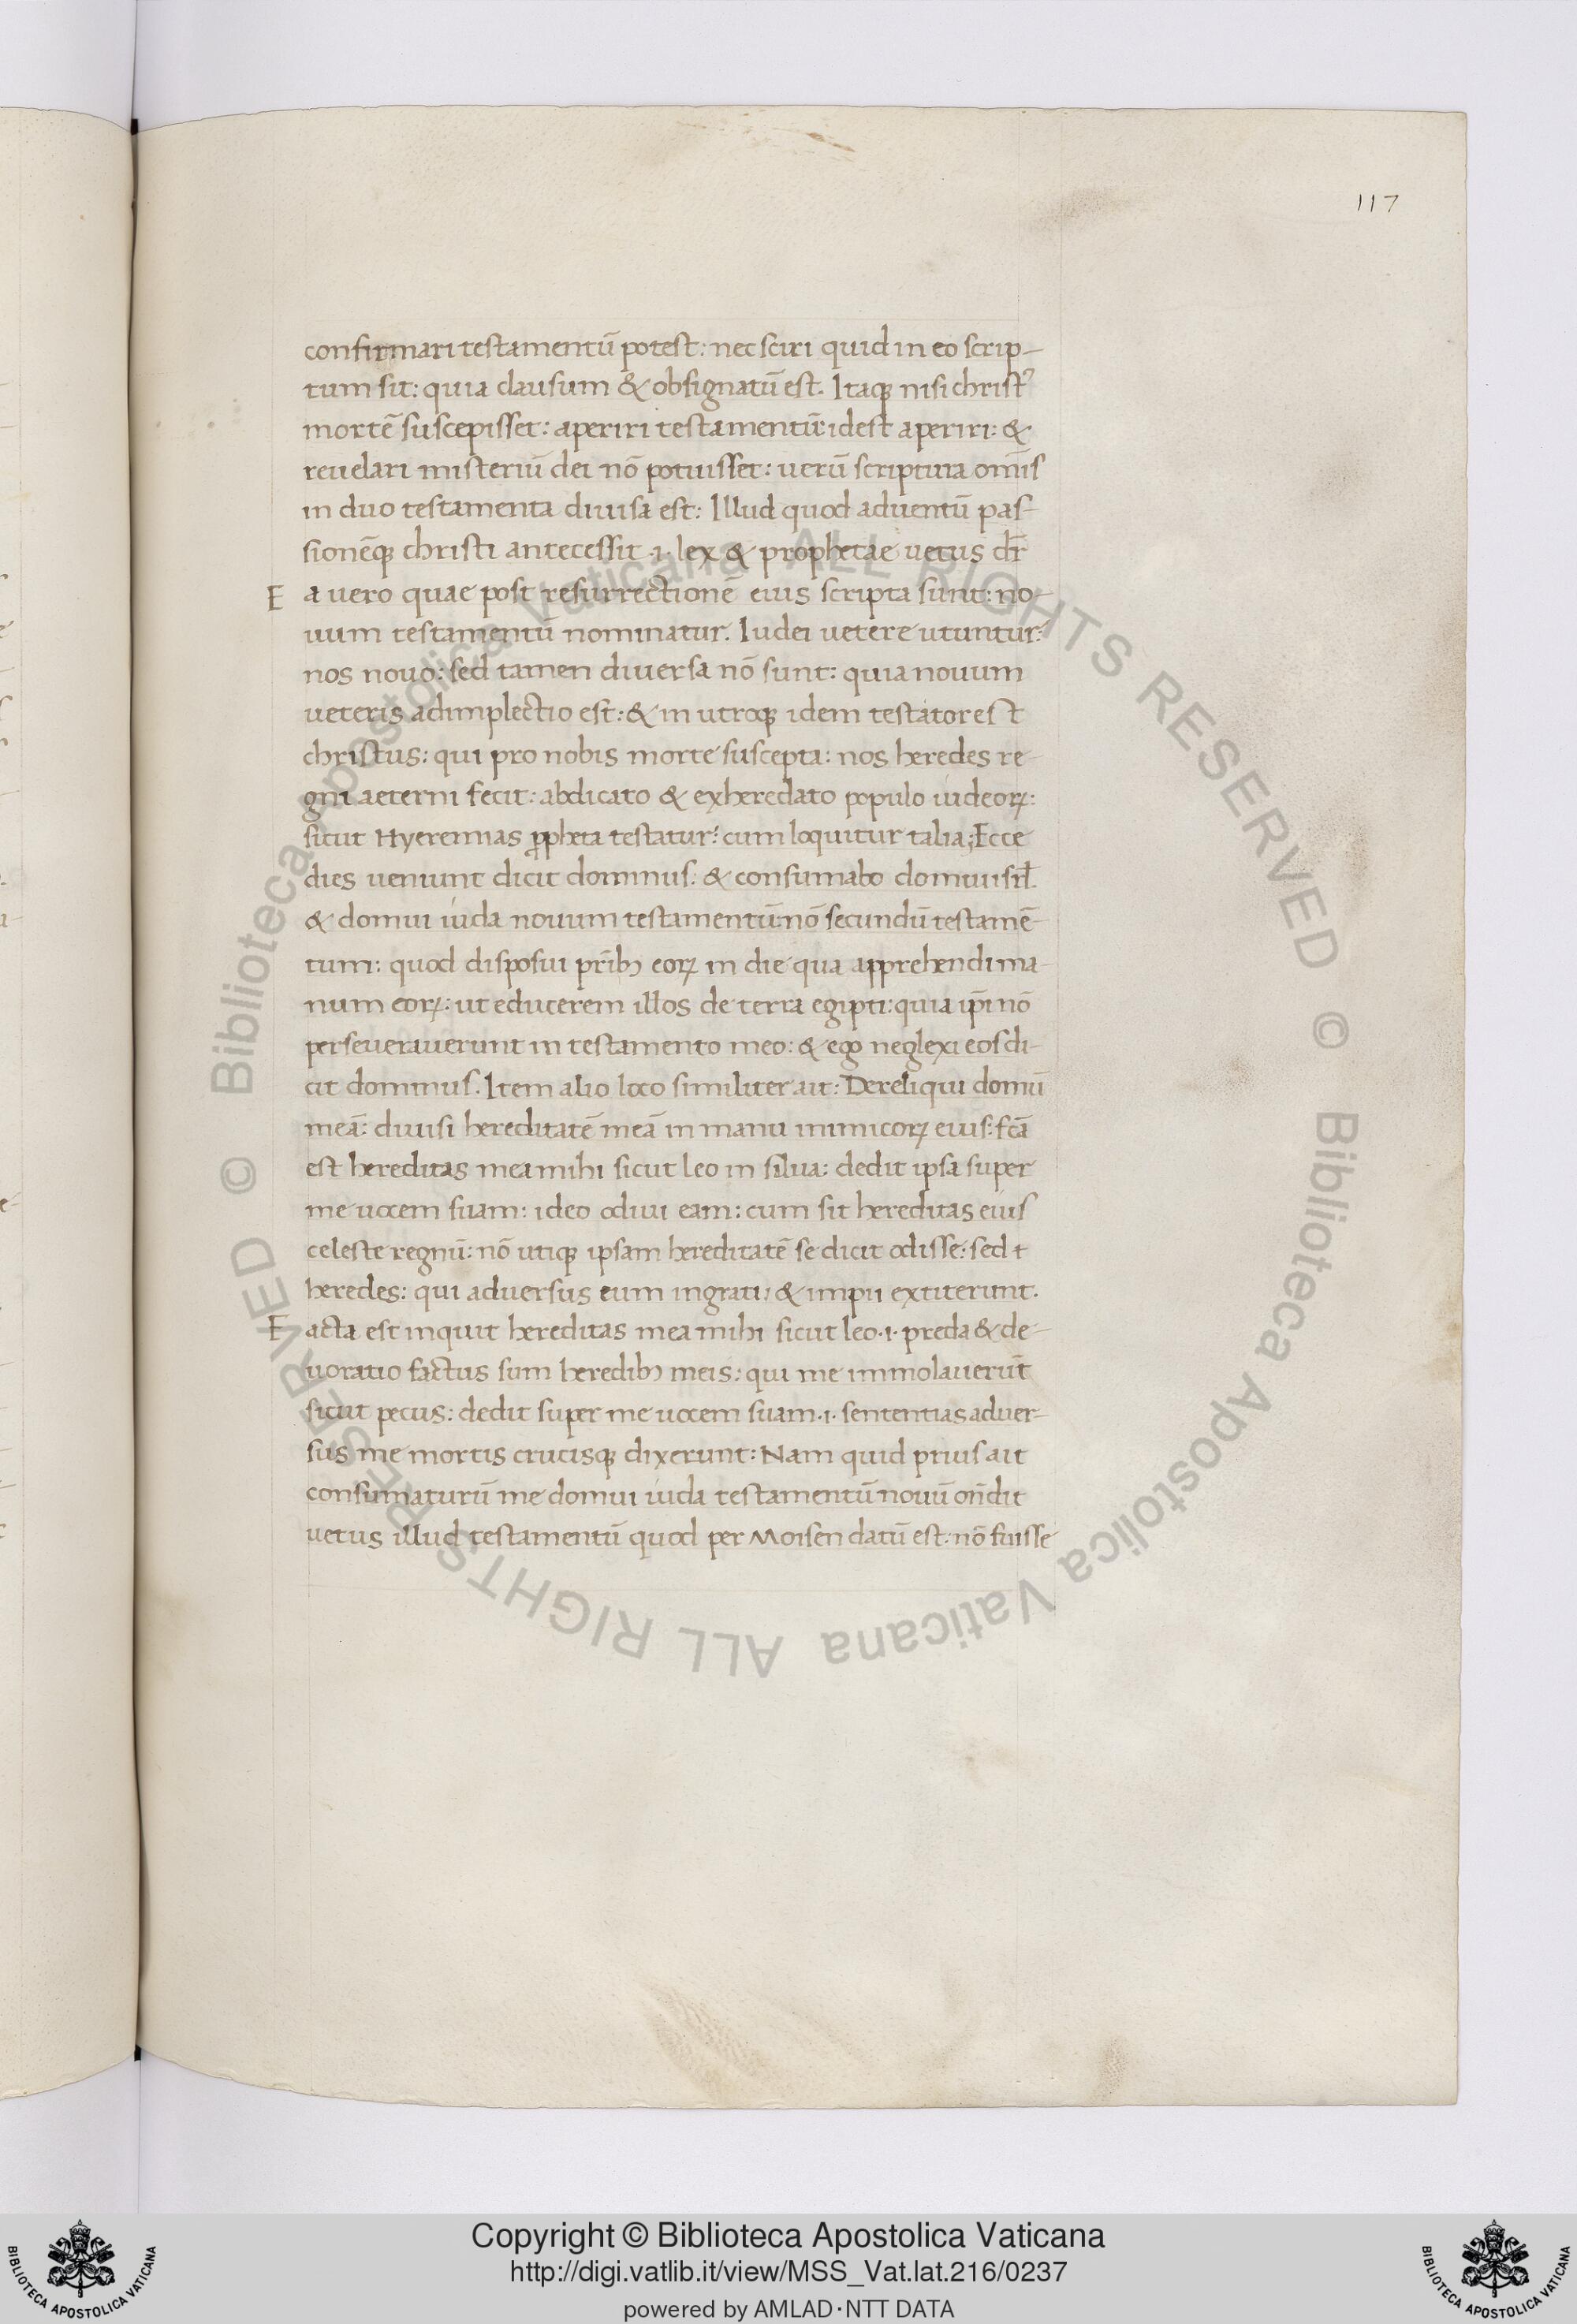 117
confirmari testamentū potest: nec sciri quid in eo scrip-
tum sit: quia clausum & obsignatū est. Itaqꝫ nisi christꝰ
mortē suscepisset: aperiri testamentū: idest aperiri: &
reuelari misteriū dei nō potuisset: uerū scriptura om̄is
in duo testamenta diuisa est: Illud quod aduentū pas-
sionēqꝫ christi antecessit .i. lex & prophetae uetus dr̄
E a uero quae post resurrectionē eius scripta sunt: no-
uum testamentū nominatur. Iudei uetere utuntur:
nos nouo: sed tamen diuersa nō sunt: quia nouum
ueteris adimplectio est: & in utroqꝫ idem testator est
christus: qui pro nobis morte suscepta: nos heredes re-
gni aeterni fecit: abdicato & exheredato populo iudeoꝝ:
sicut Hyeremias ꝓpheta testatur: cum loquitur talia; Ecce
dies ueniunt dicit dominus: & consumabo domui isrl̄.
& domui iuda nouum testamentū: nō secundū testamē-
tum: quod disposui pr̄ibꝫ eoꝝ in die qua apprehendi ma-
num eoꝝ: ut educerem illos de terra egipti: quia ip̄i nō
perseuerauerunt in testamento meo: & ego neglexi eos di-
cit dominus. Item alio loco similiter ait: Dereliqui domū
meā: diuisi hereditatē meā in manu inimicoꝝ eius: fc̄a
est hereditas mea mihi sicut leo in silua: dedit ipsa super
me uocem suam: ideo odiui eam: cum sit hereditas eius
celeste regnū: nō utiqꝫ ipsam hereditatē se dicit odisse: sed
heredes: qui aduersus eum ingrati: & impii extiterunt.
F acta est inquit hereditas mea mihi sicut leo .i. preda & de-
uoratio factus sum heredibꝫ meis: qui me immolauerūt
sicut pecus: dedit super me uocem suam .i. sententias aduer-
sus me mortis crucisqꝫ dixerunt: Nam quid prius ait
consumaturū me domui iuda testamentū nouū on̄dit
uetus illud testamentū quod per Moisen datū est: nō fuisse
Copyright © Biblioteca Apostolica Vaticana
http://digi.vatlib.it/view/MSS_Vat.lat.216/0237
powered by AMLAD·NTT DATA
BIBLIOTECA APOSTOLICA VATICANA
BIBLIOTECA APOSTOLICA VATICANA
© Biblioteca Apostolica Vaticana ALL RIGHTS RESERVED © Biblioteca Apostolica Vaticana ALL RIGHTS RESERVED